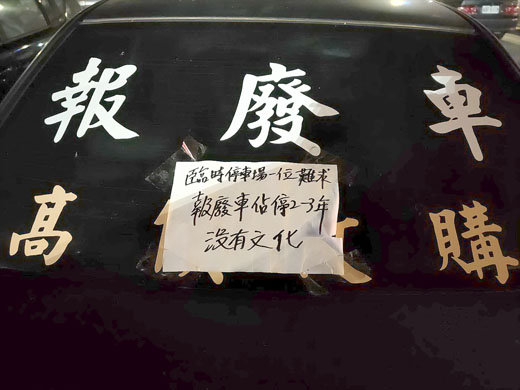 報廢車
臨時停車場一位難求
報廢車佔停2~3年
沒有文化
高 購